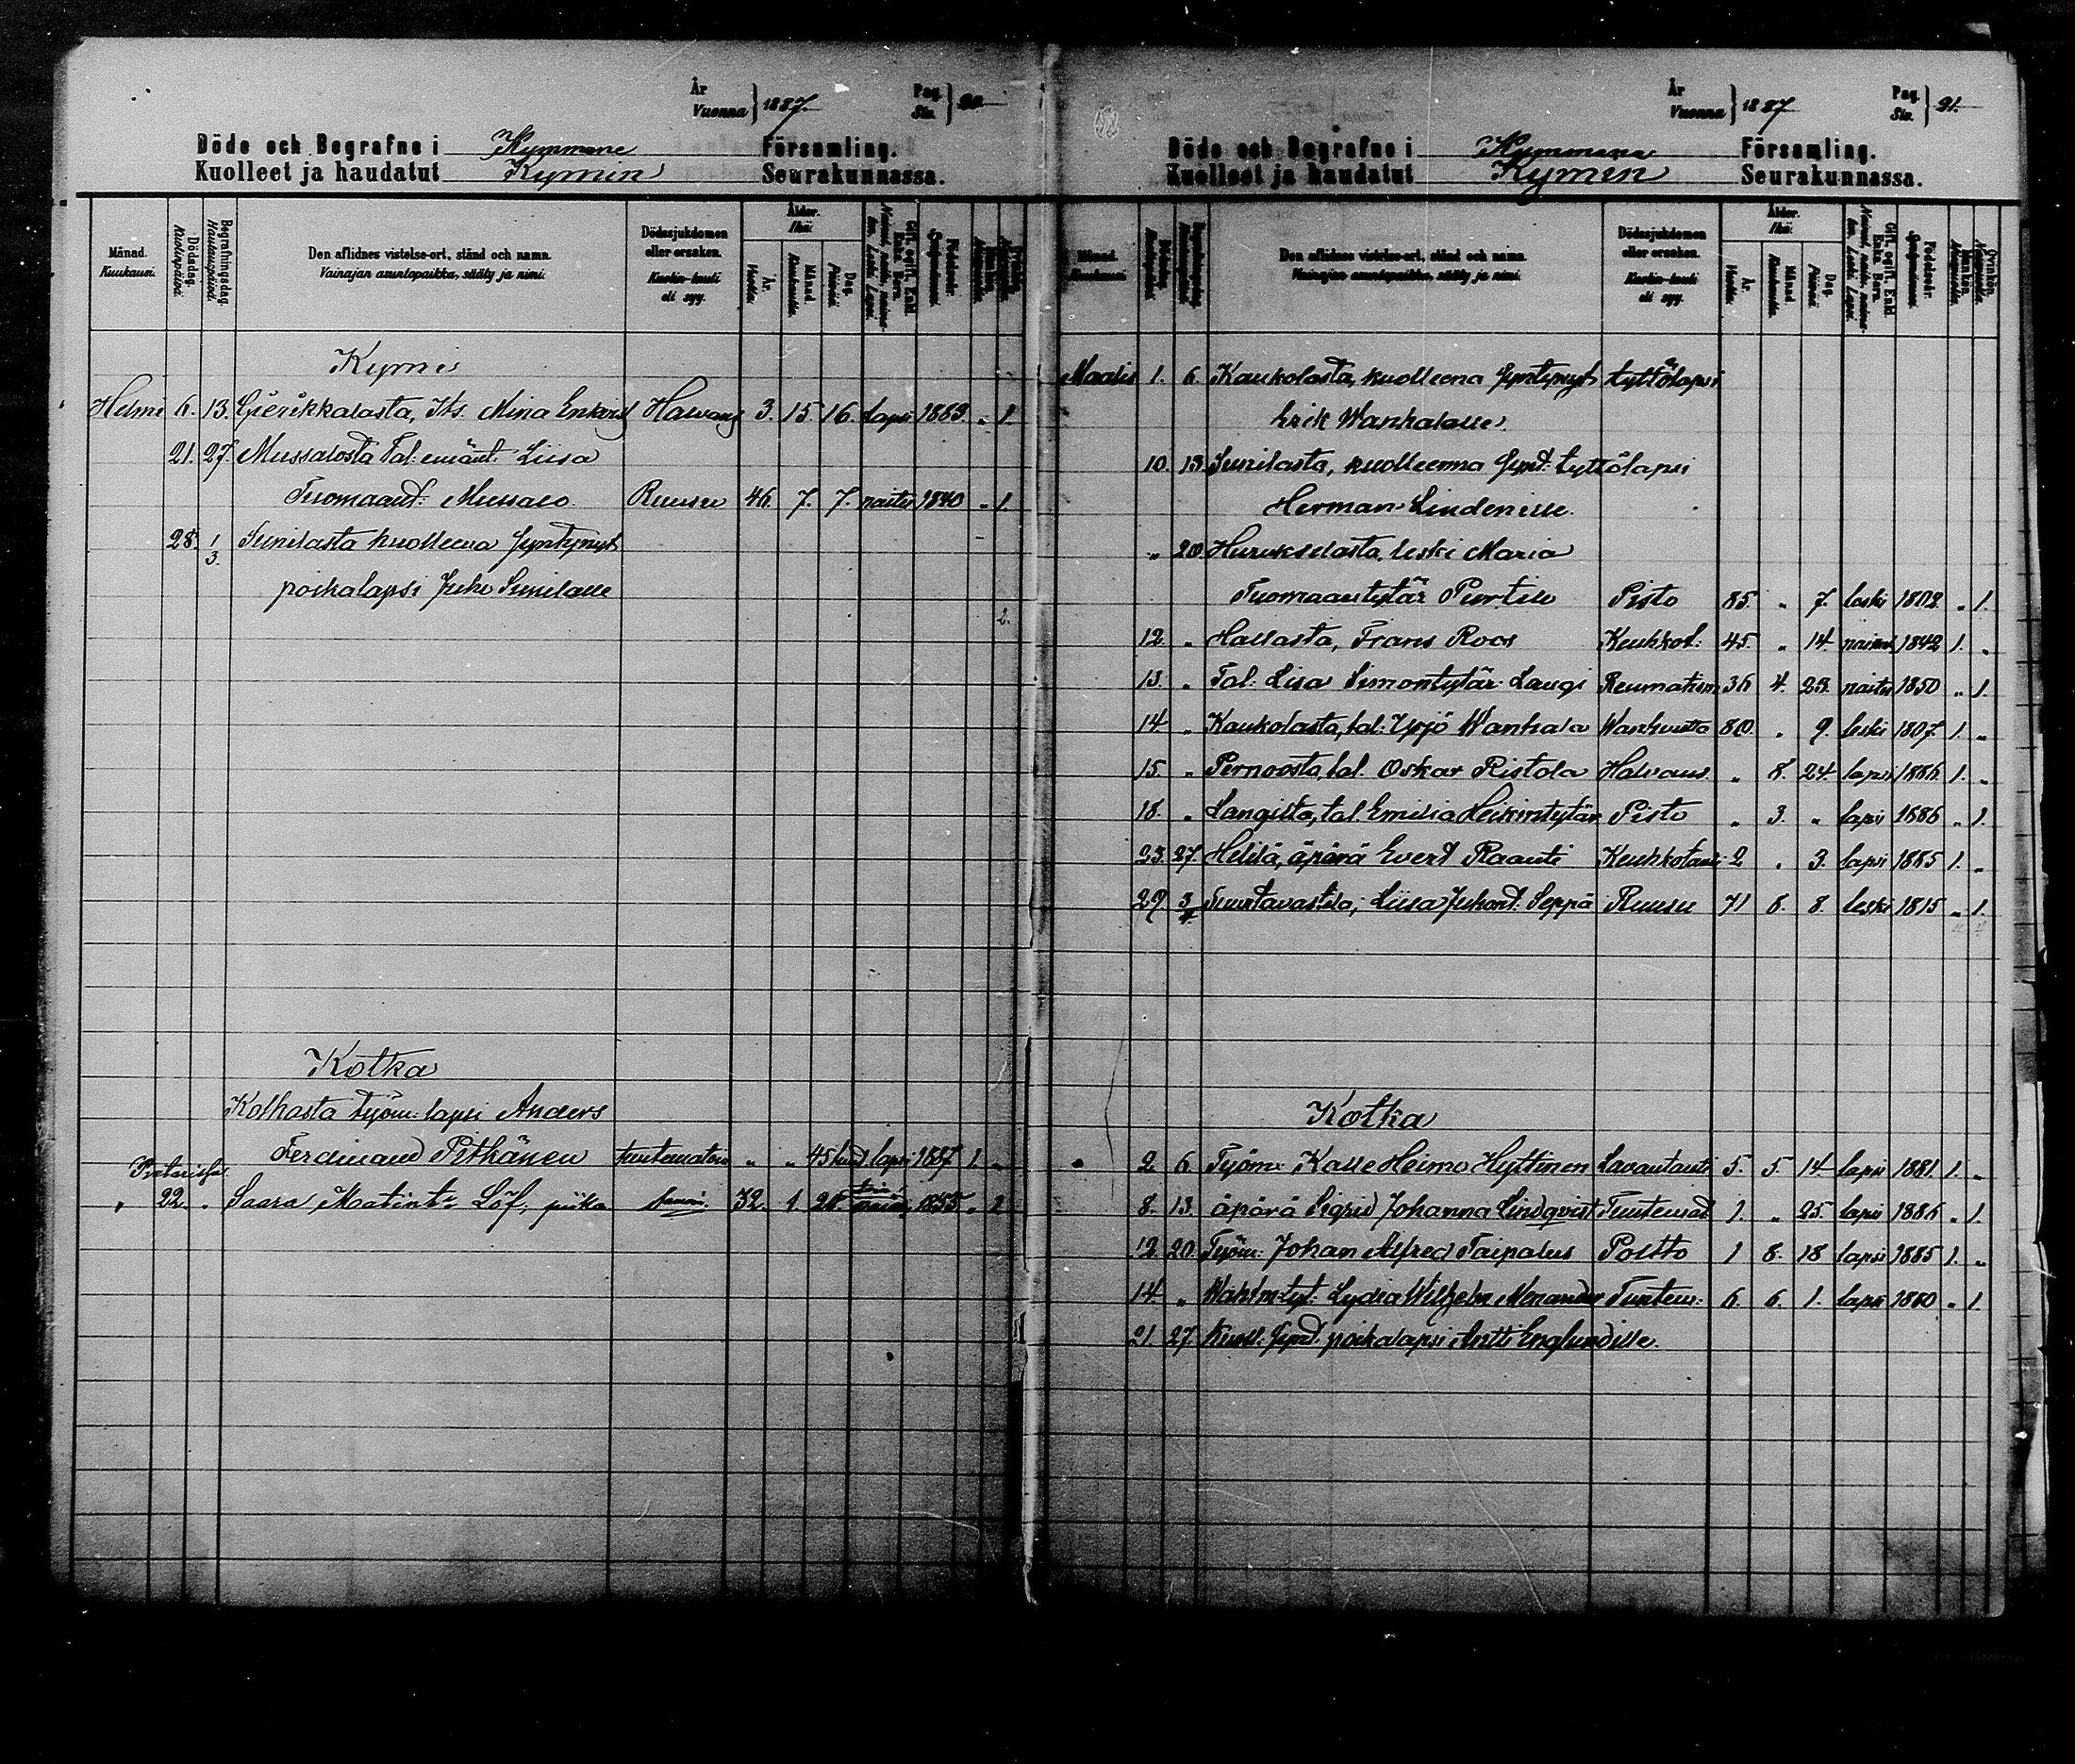 År Vuonna } 1887. Pag. Siv. } 90.
Döde och Begrafne i Kymmene Församling.
Kuolleet ja haudatut Kymin Seurakunnassa.
Månad. Kuukausi. Dödsdag. Kuolinpäivä Begrafningsdag. Hautauspäivä Den aflidnes vistelse-ort, stånd och namn. Vainajan asuntopaikka, sääty ja nimi. Dödssjukdomen eller orsaken. Kuolin-tauti eli syy. Ålder. Ikä. År. Vuotta. Månad Kuukautta. Dag. Päivää Gift, ogift, Enkl. Enka. Barn. Födelseår. Mankön. Qvinkön.
Kymi
Helmi 6. 13. Gierikkalasta, Its. Mina Halvaus 3. 15. 16. lapsi 1883. „ 1.
21. 27. Mussalosta Tal. emänt. Liisa
Tuomaant: Mussalo. Ruusu 46. 7. 7. naitu 1840 „ 1.
28. 1/3. Sunilasta kuolleena syntynyt
poikalapsi Juho Sunilalle
2.
Kotka
Kotkasta työm: lapsi Anders
Ferdinand Pitkänen tuntematon „ „ 45 lapsi 1887 1. „
„ 22. „ Saara Matint: Löf, piika 32. 1. 1855 „ 1
År Vuonna } 1887 Pag. Siv. } 91.
Döde och Begrafne i Kymmene Församling.
Kuolleet ja haudatut Kymin Seurakunnassa.
Månad. Kuukausi. Dödsdag. Kuolinpäivä Begrafningsdag. Hautauspäivä Den aflidnes vistelse-ort, stånd och namn. Vainajan asuntopaikka, sääty ja nimi. Dödssjukdomen eller orsaken. Kuolin-tauti eli syy. Ålder. Ikä. År. Vuotta. Månad Kuukautta. Dag. Päivää Gift, ogift, Enkl. Enka. Barn. Födelseår. Mankön. Qvinkön.
Maalis 1. 6. Kaukolasta, kuolleena syntynyt tyttölapsi
Erik Wanhalalle.
10. 13. Sunilasta, kuolleenna synt: tyttölapsi
Herman Lindenille.
„ 20. Hurukselasta, leski Maria
Tuomaantytär Purtilo Pisto 85. „ 7. leski 1802. „ 1.
12. „ Hallasta, Frans Roos Keuhkot: 45. „ 14. 1842 1. „
13. „ Tal: Lisa Simontytär Laugi Reumatism 36 4. 23. naitu 1850 „ 1.
14. „ Kaukolasta, tal: Yrjö Wanhala Wanhuutta 80. „ 9. leski 1807 1. „
15. „ Pernoosta, tal. Oskar Ristola Halvaus. „ 8. 24. lapsi 1886. 1. „
18. „ Langilta, tal. Emilia Heikintytär Pisto „ 3. „ lapsi 1886 „ 1.
23. 27. Helilä, äpärä Evert Raanti Keuhkotauti 2 „ 3. lapsi 1885 1. „
29. 3/4 Suurtavastila; Liisa Juhont: Seppä Ruusu 71 8. 8. leski 1815 „ 1.
Kotka
„ 2 6. Työm: Kalle Heimo Hyttinen Lavantauti 5. 5. 14. lapsi 1881. 1. „
8. 13. äpärä Sigrid Johanna Lindqvist Tuntemat 1. „ 25. lapsi 1886 „ 1.
12. 20. Työm: Johan Alfred Taipalus Poltto 1 8. 18 lapsi 1885 1. „
14. „ Wahtm: tyt. Lydia Wilhelm Menander Tuntem: 6. 6. 1. lapsi 1880 „ 1.
21. 27. Kuoll: synt. poikalapsi Antti Englundille.